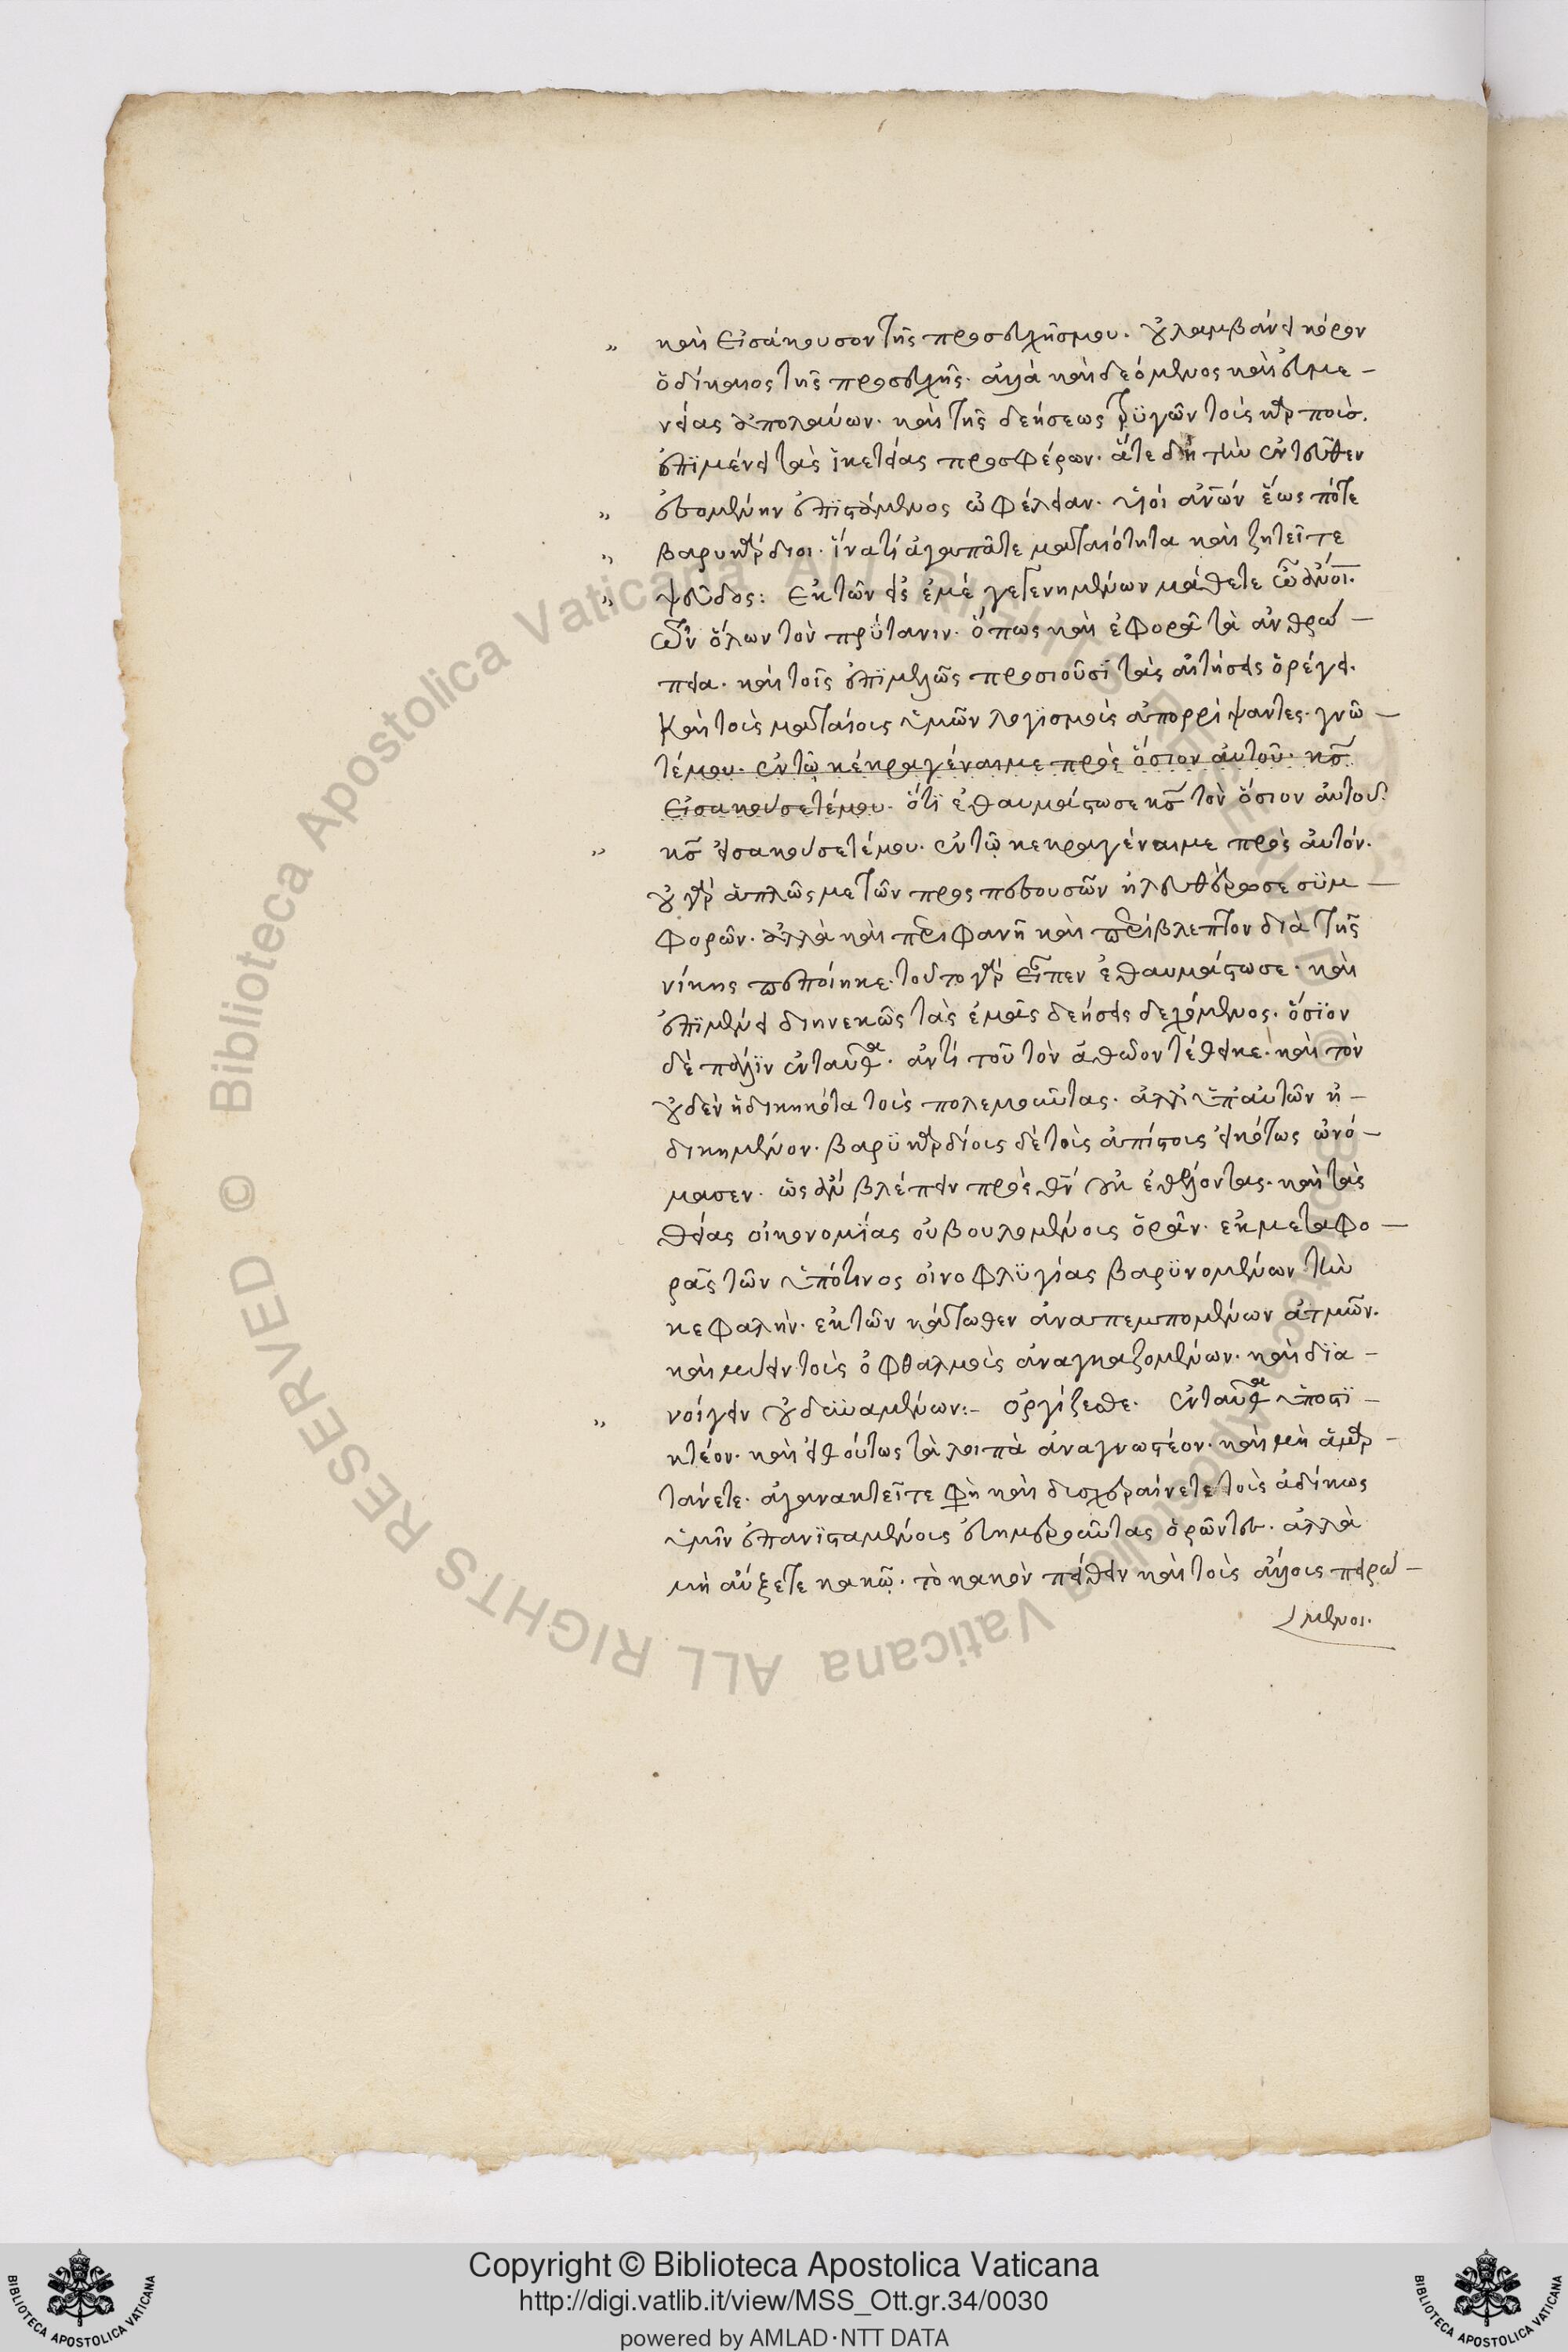 „ καὶ εἰσάκουσον τῆς προσευχῆς μου. οὐ λαμβάνει κόρον
ὁ δίκαιος τῆς προσευχῆς. ἀλλὰ καὶ δεόμενος καὶ εὐμε-
νείας ἀπολαύων. καὶ τῆς δεήσεως τρυγῶν τοὺς καρπούς.
ἐπιμένει τὰς ἱκετείας προσφέρων. ἅτε δὴ τὴν ἐντεῦθεν
„ ἐσομένην ἐπιστάμενος ὠφέλειαν. υἱοὶ ἀνων ἕως πότε
„ βαρυκάρδιοι. ἵνατί ἀγαπᾶτε ματαιότητα καὶ ζητεῖτε
„ ψεῦδος: ἐκ τῶν εἰς ἐμὲ γεγενημένων μάθετε ὦ ἀνοι.
τῶν ὅλων τὸν πρύτανιν. ὅπως καὶ ἐφορᾷ τὰ ἀνθρώ-
πεια. καὶ τοῖς ἐπιμελῶς προσιοῦσι τὰς αἰτήσεις ὀρέγει.
Καὶ τοὺς ματαίους ὑμῶν λογισμοὺς ἀπορρίψαντες. γνῶ-
τέ μου. ἐν τῷ κεκραγέναι με πρὸς ὅσιον αὐτοῦ. κς
εἰσακούσεταί μου. ὅτι ἐθαυμάστωσε κς τὸν ὅσιον αὐτοῦ.
„ κς εἰσακούσεταί μου. ἐν τῷ κεκραγέναι με πρὸς αὐτόν.
οὐ γὰρ ἁπλῶς με τῶν προσπεσουσῶν ἠλευθέρωσε συμ-
φορῶν. ἀλλὰ καὶ περιφανῆ καὶ περίβλεπτον διὰ τῆς
νίκης πεποίηκε. τοῦτο γὰρ εἶπεν ἐθαυμάστωσε. καὶ
ἐπιμένει διηνεκῶς τὰς ἐμὰς δεήσεις δεχόμενος. ὅσιον
δὲ πάλιν ἐνταῦθα. ἀντὶ τοῦ τὸν ἀθῷον τέθεικε. καὶ τὸν
οὐδὲν ἠδικηκότα τοὺς πολεμοῦντας. ἀλλ' ὑπ' αὐτῶν ἠ-
δικημένον. βαρυκαρδίους δὲ τοὺς ἀπίστους εἰκότως ὠνό-
μασεν. ὡς ἄνω βλέπειν πρὸς θν οὐκ ἐθέλοντας. καὶ τὰς
θείας οἰκονομίας οὐ βουλομένους ὁρᾶν. ἐκ μεταφο-
ρᾶς τῶν ὑπό τινος οἰνοφλυγίας βαρυνομένων τὴν
κεφαλὴν. ἐκ τῶν κάτωθεν ἀναπεμπομένων ἀτμῶν.
καὶ μύειν τοὺς ὀφθαλμοὺς ἀναγκαζομένων. καὶ δια-
„ νοίγειν οὐ δυναμένων:- ὀργίζεσθε. ἐνταῦθα ὑποστι-
κτέον. καὶ εἶθ' οὕτως τὰ λοιπὰ ἀναγνωστέον. καὶ μὴ ἁμαρ-
τάνετε. ἀγανακτεῖτε φησὶ καὶ δυσχεραίνετε τοὺς ἀδίκως
ὑμῖν ἐπανισταμένους εὐημεροῦντας ὁρῶντες. ἀλλὰ
μὴ αὔξετε κακῷ. τὸ κακὸν πείθειν καὶ τοὺς ἄλλους πειρώ-
μενοι.
Copyright © Biblioteca Apostolica Vaticana
http://digi.vatlib.it/view/MSS_Ott.gr.34/0030
powered by AMLAD·NTT DATA
BIBLIOTECA APOSTOLICA VATICANA
BIBLIOTECA APOSTOLICA VATICANA
© Biblioteca Apostolica Vaticana ALL RIGHTS RESERVED © Biblioteca Apostolica Vaticana ALL RIGHTS RESERVED